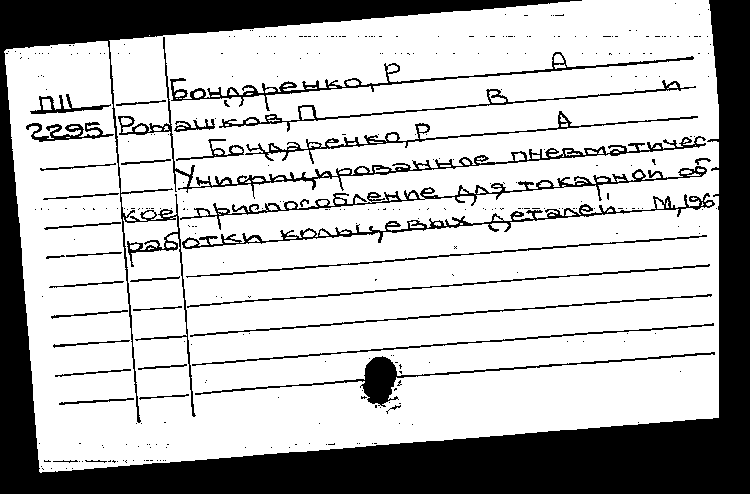 Бондаренко, Р А
П11
2295 Ромашков, П В и
Бондаренко, Р А
Унифицированное пневматичес-
кое приспособление для токарной об-
работки кольцевых деталей. М, 196